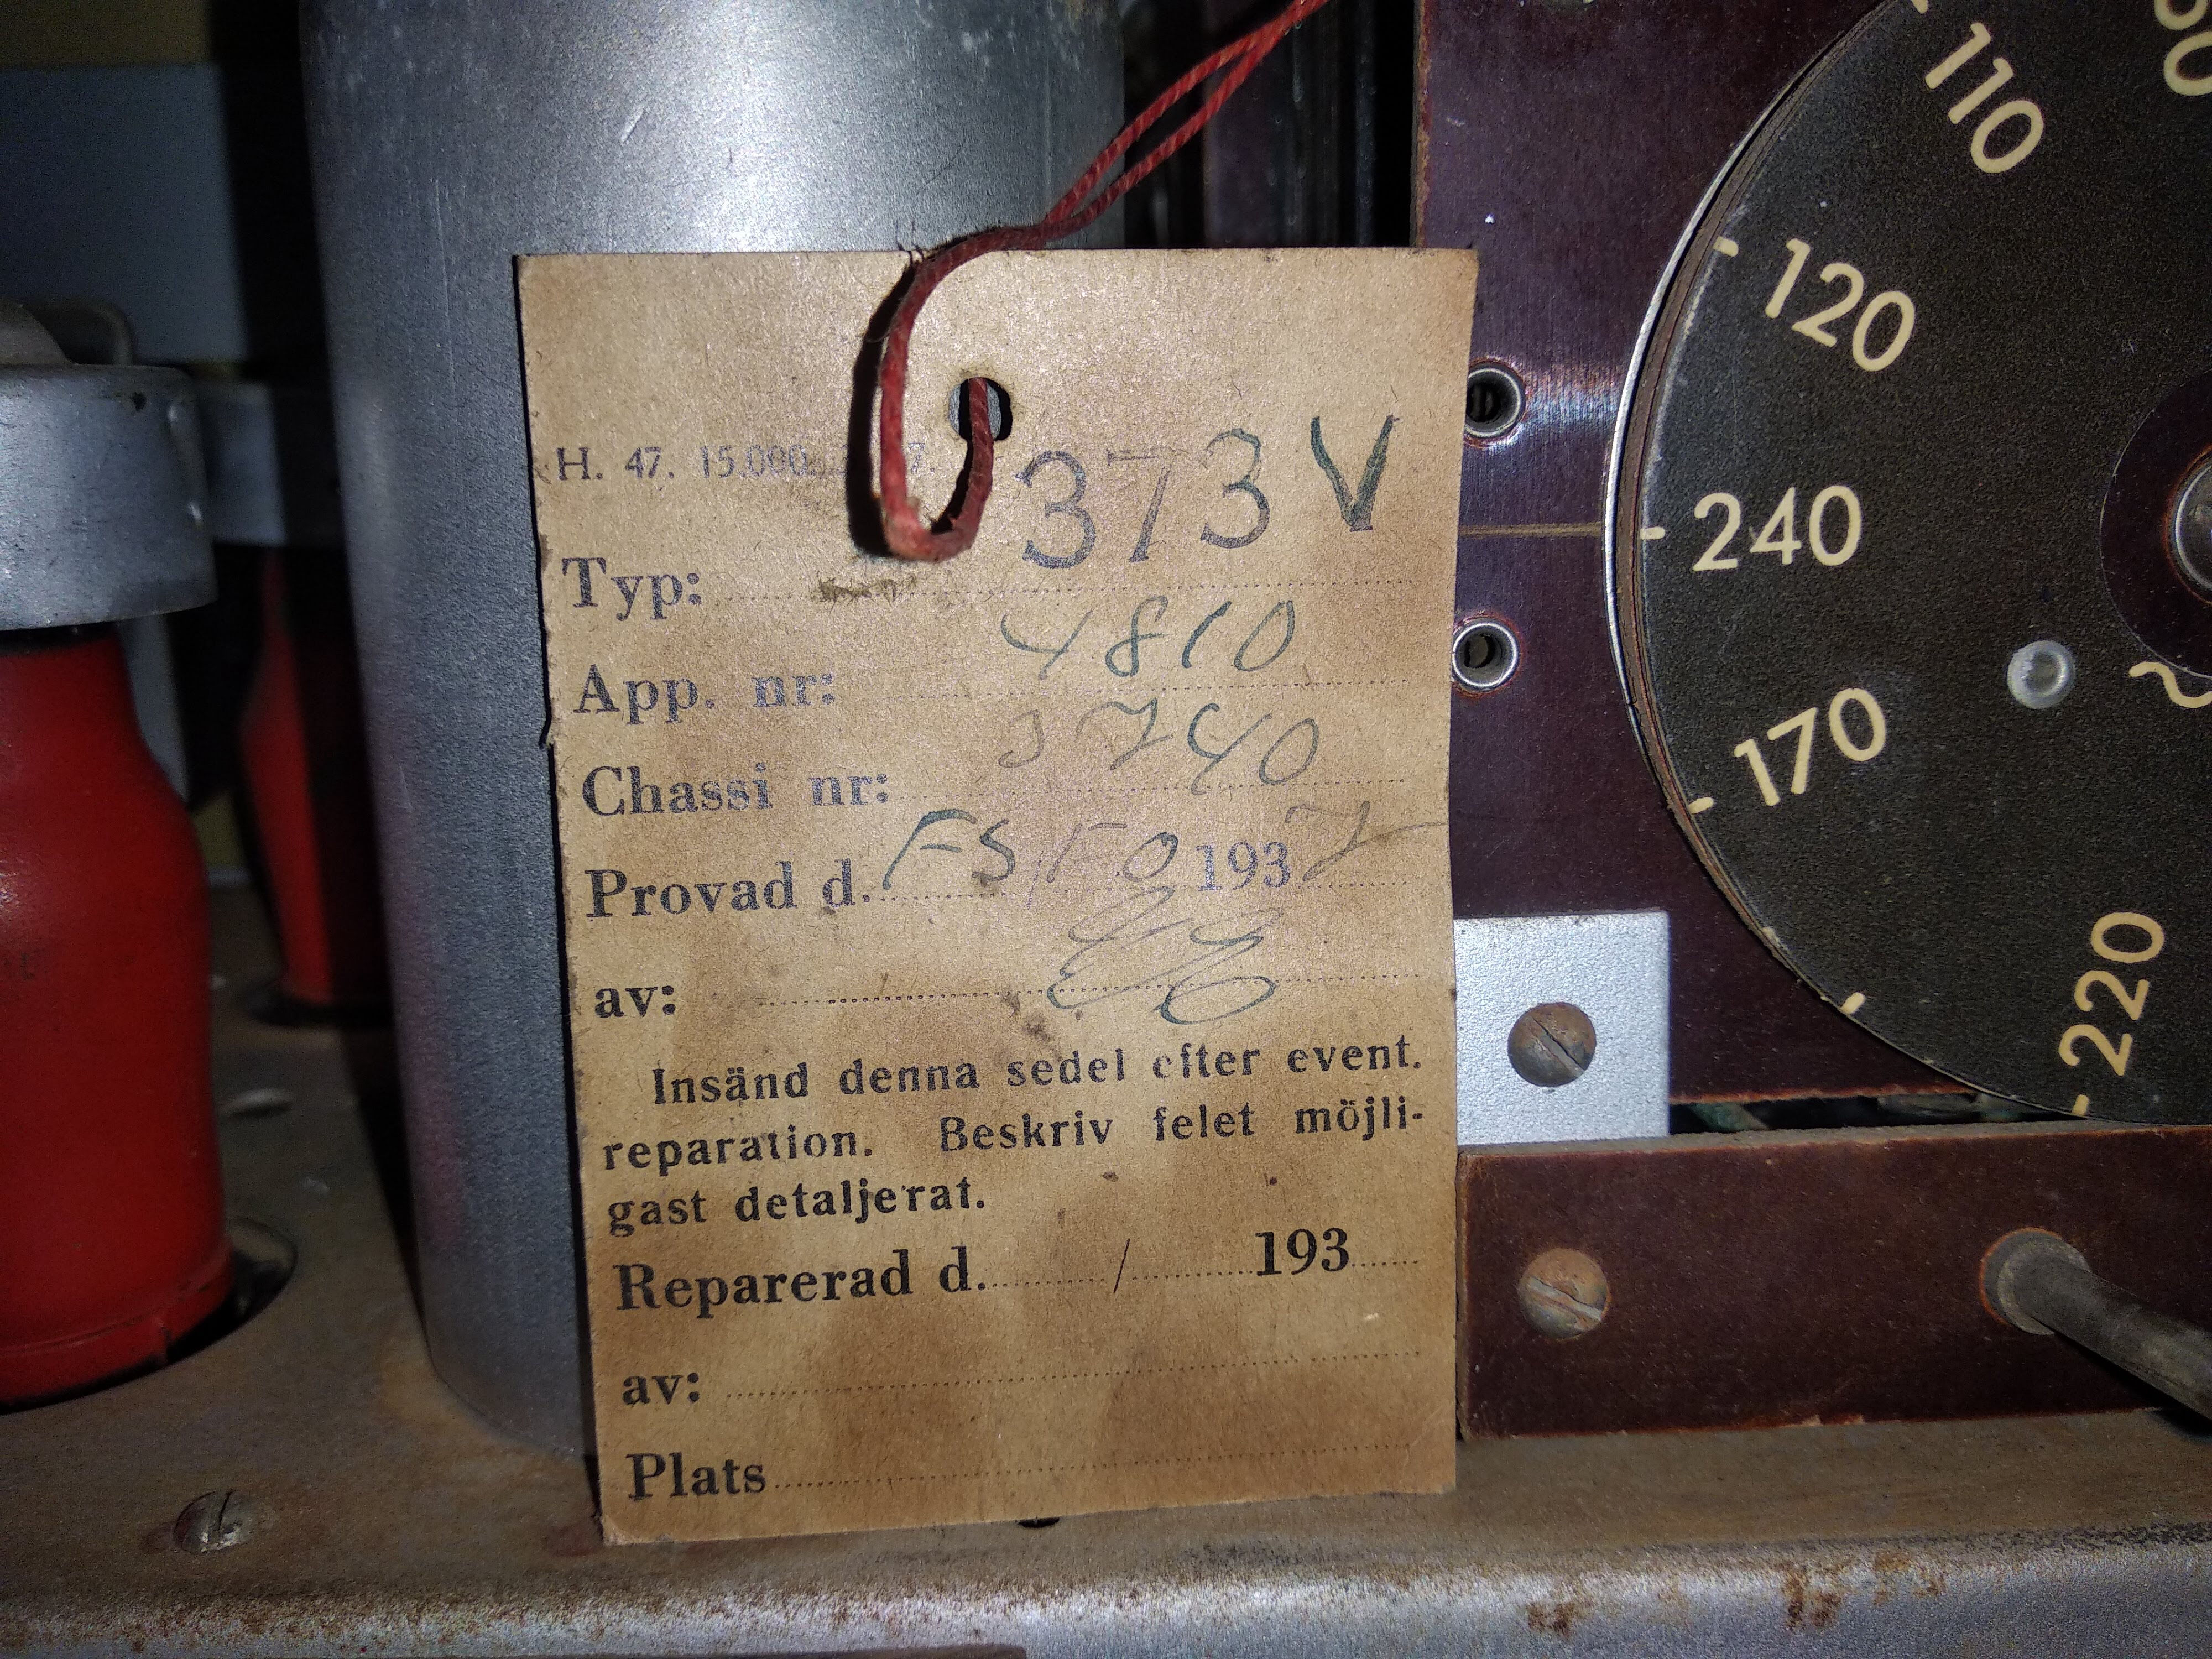 H. 47. 15.000. 7.
373 V
Typ:
4810
App. nr:
3740
Chassi nr:
Provad d. FS/FO 1937
av:
Insänd denna sedel efter event.
reparation. Beskriv felet möjli-
gast detaljerat.
Reparerad d. / 193
av:
Plats
110
120
240
170
220